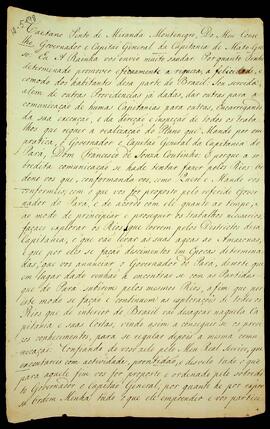 Caetano Pinto de Miranda Montenegro, Do Meu Conse
lho Governador e Capitaõ General da Capitania de Mato-Gros
so. Eu A Rainha vos envio muito saudar. Porquanto Tenho
determinado promover efficazmente a riqueza, a felicidade, e
comodo dos habitantes desse parte do Brazil: Sou servida,
alem de outras Providencias já dadas, dar outras para a
comunicaçaõ de humas Capitanias para outras, Encarregando
da sua execuçaõ, e da direçaõ, e inspeçaõ de todos os traba
lhos que requer a realizaçaõ do Plano que Mando por em
pratica, o Governador e Capitaõ General da Capitania do
Pará, Dom Francisco de Souza Coutinho: E porque a so
bredita comunicaçaõ se hade tentar fazer pelos Rios
de vos que, conformando vos, Quero e Mando vos
conformeis, com o que vos for proposto pelo referido Gover
nador do Pará, e de acordo com elle quanto ao tempo, e
ao modo de principiar e proseguir os trabalhos necessarios
façaes explorar os Rios, que correm pelos Destrictos dessa
Capitania, e que vaõ levar as suas agoas ao Amazonas,
e que por elle se façaõ descimentos em Epocas determina
das, para vos annunciar o Governador do Pará, de sorte que
em lugar dado venhaõ a encontrar se com as Partidas
que do Pará subirem pelos mesmos Rios, a fim que por
este modo se façaõ e continuem as exploraçoens de todos os
Rios que do interior do Brazil vaõ desagoar naquella Ca
pitania e suas Costas, vendo assim a conseguir se os preci
sos conhecimentos, para se regular depois a mesma comu
nicaçaõ. Confiando do vosso zelo pelo Meu Real Serviço, que
executareis com actividade, promptidaõ, e desvelo tudo o que
a aquelle fim vos for proposto e ordenado pelo sobredi
to Governador e Capitaõ General, por quanto he por expre
sa Ordem Minha tudo o que elle emprender e vos partici